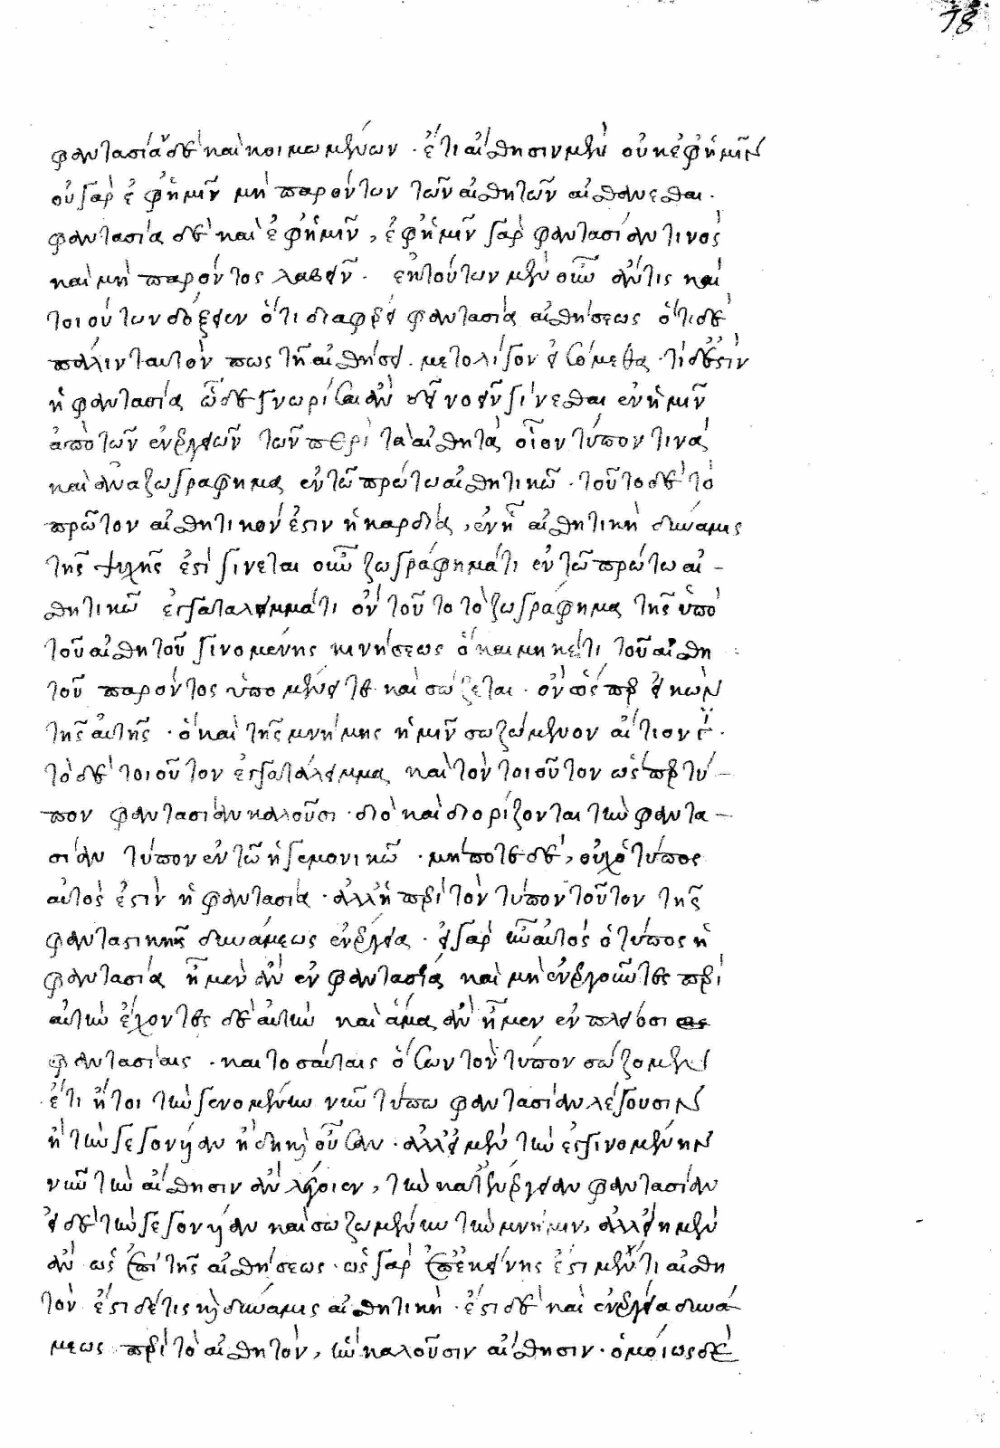 78
φαντασία δὲ καὶ κοιμωμένων. ἔτι αἴσθησιν μὲν οὐκ ἐφ' ἡμῖν
οὐ γὰρ ἐφ' ἡμῖν μὴ παρόντων τῶν αἰσθητῶν αἰσθάνεσθαι.
φαντασία δὲ καὶ ἐφ' ἡμῖν, ἐφ' ἡμῖν γὰρ φαντασίαν τινὸς
καὶ μὴ παρόντος λαβεῖν. ἐκ τούτων μὲν οὖν ἄν τις καὶ
τοιούτων δόξειεν ὅτι διαφέρει φαντασία αἰσθήσεως ὅτι δὲ
πάλιν ταυτόν πως τῇ αἰσθήσει. μετ' ὀλίγον εἰσόμεθα. τί δέ ἐστιν
ἡ φαντασία ὧδε γνωρίσαι ἂν δεῖ νοεῖν γίνεσθαι ἐν ἡμῖν
ἀπὸ τῶν ἐνεργειῶν τῶν περὶ τὰ αἰσθητὰ οἷον τύπον τινὰ
καὶ ἀναζωγράφημα ἐν τῷ πρώτῳ αἰσθητικῷ. τοῦτο δὲ τὸ
πρῶτον αἰσθητικόν ἐστιν ἡ καρδία, ἐν ᾗ αἰσθητικὴ δύναμις
τῆς ψυχῆς ἐστὶ γίνεται οὖν ζωγραφήματι ἐν τῷ πρώτῳ αἰ-
σθητικῷ ἐγκαταλείμματι ὂν τοῦτο τὸ ζωγράφημα τῆς ὑπὸ
τοῦ αἰσθητοῦ γινομένης κινήσεως ὃ καὶ μηκέτι τοῦ αἰσθη
τοῦ παρόντος ὑπομένει τε καὶ σώζεται. ὂν ὥσπερ εἰκὼν
τῆς αὐτῆς. ὃ καὶ τῆς μνήμης ἡμῖν σωζόμενον αἴτιόν ἐστι.
τὸ δὲ τοιοῦτον ἐγκατάλειμμα καὶ τὸν τοιοῦτον ὥσπερ τύ-
πον φαντασίαν καλοῦσι. διὸ καὶ διορίζονται τὴν φαντα-
σίαν τύπον ἐν τῷ ἡγεμονικῷ. μήποτε δὲ, οὐχ ὁ τύπος
αὐτός ἐστιν ἡ φαντασία. ἀλλ' ἡ περὶ τὸν τύπον τοῦτον τῆς
φανταστικῆς δυνάμεως ἐνέργεια. εἰ γὰρ ἦν αὐτὸς ὁ τύπος ἡ
φαντασία ἦμεν ἂν ἐν φαντασίᾳ καὶ μὴ ἐνεργοῦντες περὶ
αὐτὴν ἔχοντες δὲ αὐτὴν καὶ ἅμα ἂν ἦμεν ἐν πλείοσι
φαντασίαις. καὶ τοσαύταις ὅσων τὸν τύπον σώζομεν
ἔτι ἤτοι τὴν γενομένην νῦν τύπω φαντασίαν λέγουσιν
ἢ τὴν γεγονυῖαν ἤδη καὶ οὖσαν. ἀλλ' εἰ μὲν τὴν ἐγγινομένην
νῦν τὴν αἴσθησιν ἂν λέγοιεν, τὴν κατ' ἐνέργειαν φαντασίαν
εἰ δὲ τὴν γεγονυῖαν καὶ σωζομένην τὴν μνήμην, ἀλλ' εἴη μὲν
ἂν ὡς ἐπὶ τῆς αἰσθήσεως. ὡς γὰρ ἐπ' ἐκείνης ἐστι μέν τι αἰσθη
τὸν ἔστι δέ τις καὶ δύναμις αἰσθητικὴ. ἔστι δὲ καὶ ἐνέργεια δυνά-
μεως περὶ τὸ αἰσθητὸν, ἣν καλοῦσιν αἴσθησιν. ὁμοίως δὲ